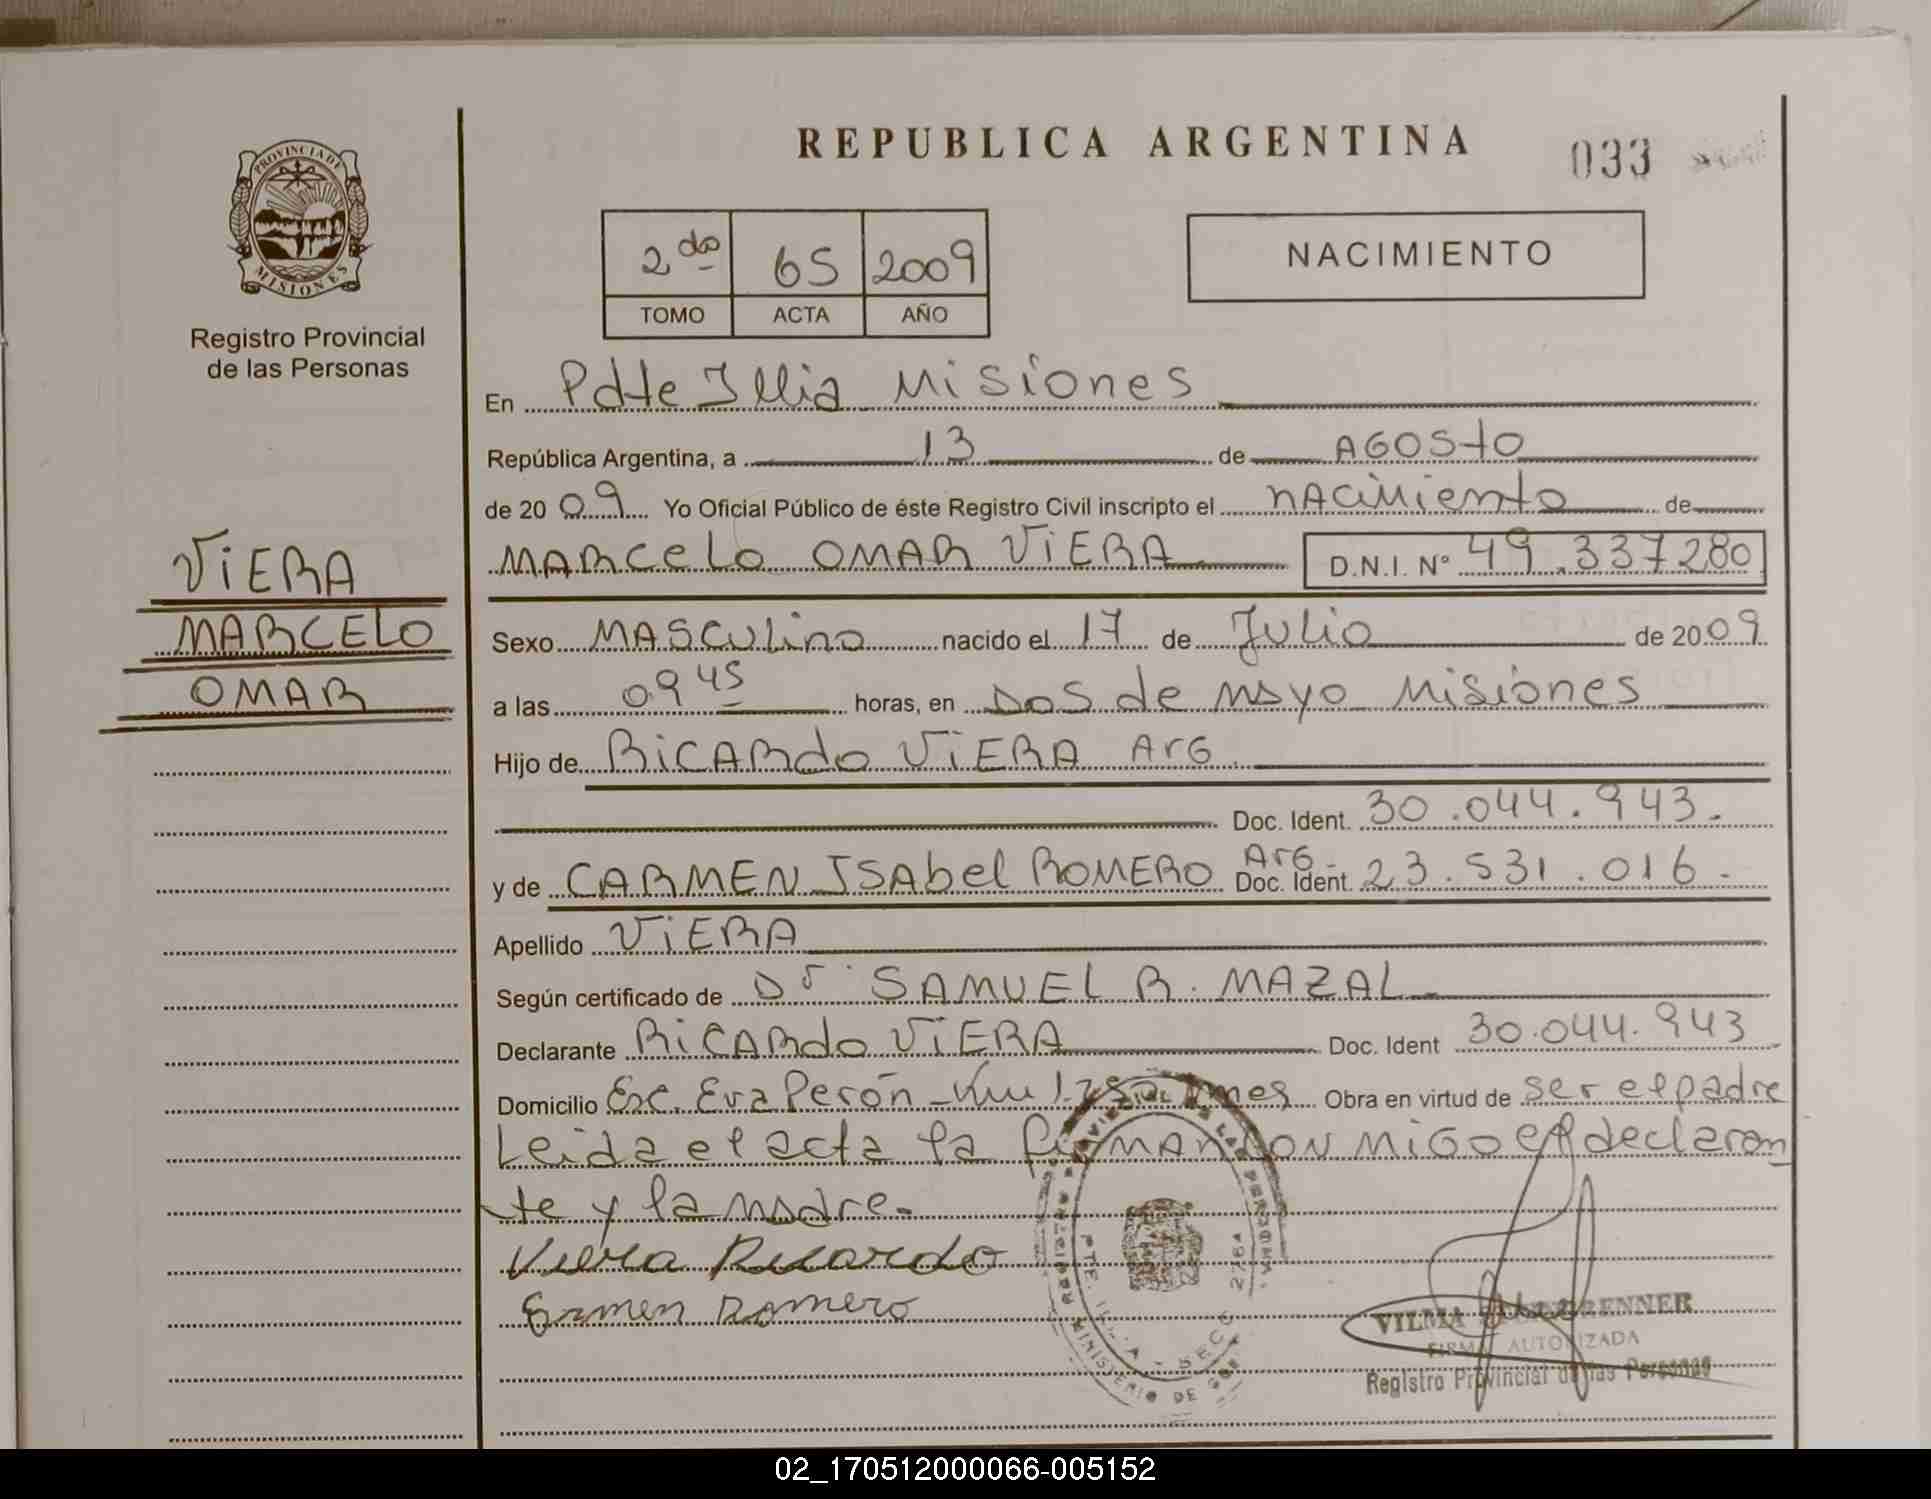 REPUBLICA ARGENTINA
033
PROVINCIA DE
MISIONES
Registro Provincial
de las Personas
2 do 65 2009
TOMO ACTA AÑO
NACIMIENTO
En Pdte Illia Misiones
República Argentina, a 13 de AGOSTO
de 20 09 Yo Oficial Público de éste Registro Civil inscripto el nacimiento de
MARCELO OMAR VIERA D.N.I. Nº 49.337280
VIERA
MARCELO
OMAR
Sexo MASCULINO nacido el 17 de Julio de 2009
a las 09 45 horas, en Dos de mayo Misiones
Hijo de RICARDO VIERA ARG
Doc. Ident. 30.044.943.
y de CARMEN ISAbel ROMERO ARG. Doc. Ident. 23.531.016.
Apellido VIERA
Según certificado de Dr SAMUEL R. MAZAL
Declarante RICARDO VIERA Doc. Ident 30.044.943
Domicilio Esc. Eva Perón Km Obra en virtud de ser el padre
Leida el acta la firman CON MIGO el declaran
te y la madre.
Viera Ricardo
Carmen Romero
REGISTRO PROVINCIAL DE LAS PERSONAS
PTE. ILLIA - SECC 2764
MINISTERIO DE GOB
VILMA
FIRMA AUTORIZADA
Registro Provincial de las Personas
02_170512000066-005152